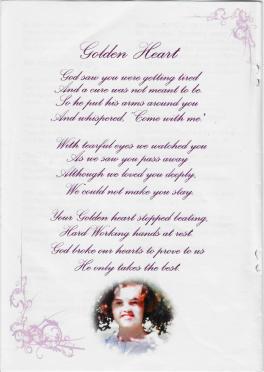 Golden Heart
God saw you were getting tired
And a cure was not meant to be.
So he put his arms around you
And whispered, "Come with me."
With tearful eyes we watched you
As we saw you pass away
Although we loved you deeply,
We could not make you stay.
Your Golden heart stopped beating,
Hard Working hands at rest.
God broke our hearts to prove to us
He only takes the best.